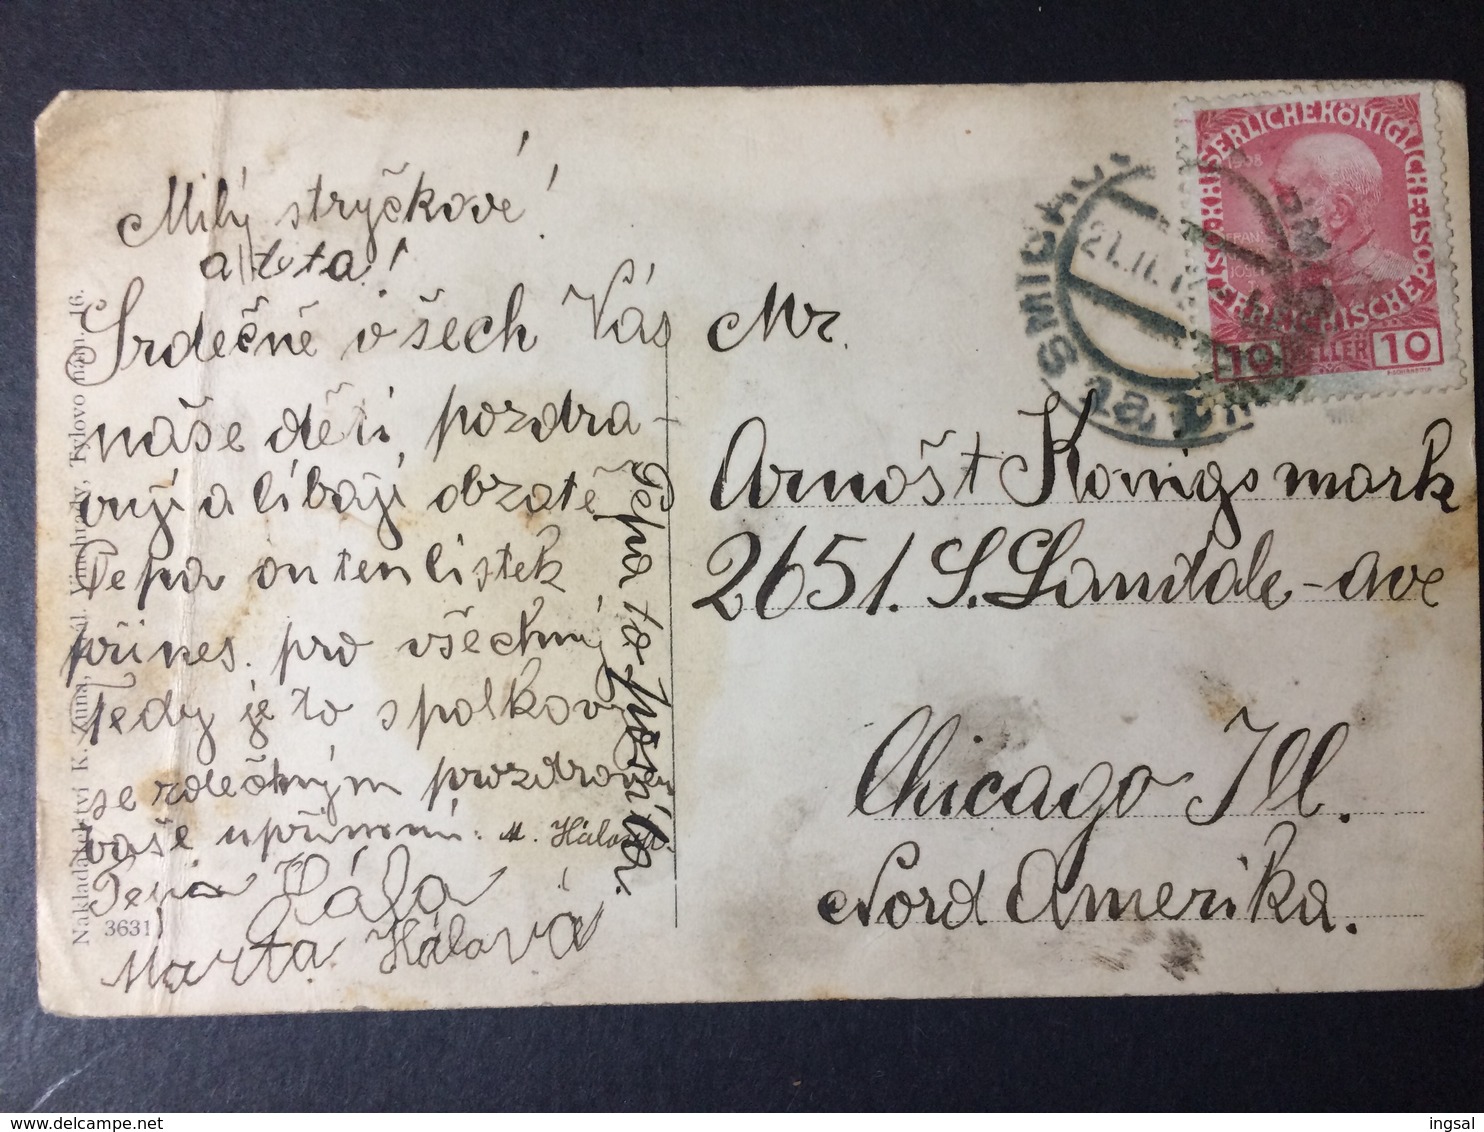 Milý strýčkové!
a teta!
Srdečně všech Vás
naše děti pozdra-
vují a líbají obzatě
Pepa on ten lístek
přines. pro všechny
Tedy je to spolkový
se rdečným pozdrave
vaše upřímní. M. Hálová
Pepa Hála
Marta Hálová
Pepa to posílá.
Nakladatelství K. Zuna, Král. Vinohrady, Tylovo nám. 16.
3631
Mr.
Arnošt Königsmark
2651. S. Landale-ave
Chicago Ill.
Nord Amerika.
SMICHOV
21. II.
1a
KAISERLICHE KÖNIGLICHE
ÖSTERREICHISCHE
1908
FRANZ JOSEF
10 HELLER 10
ingsal